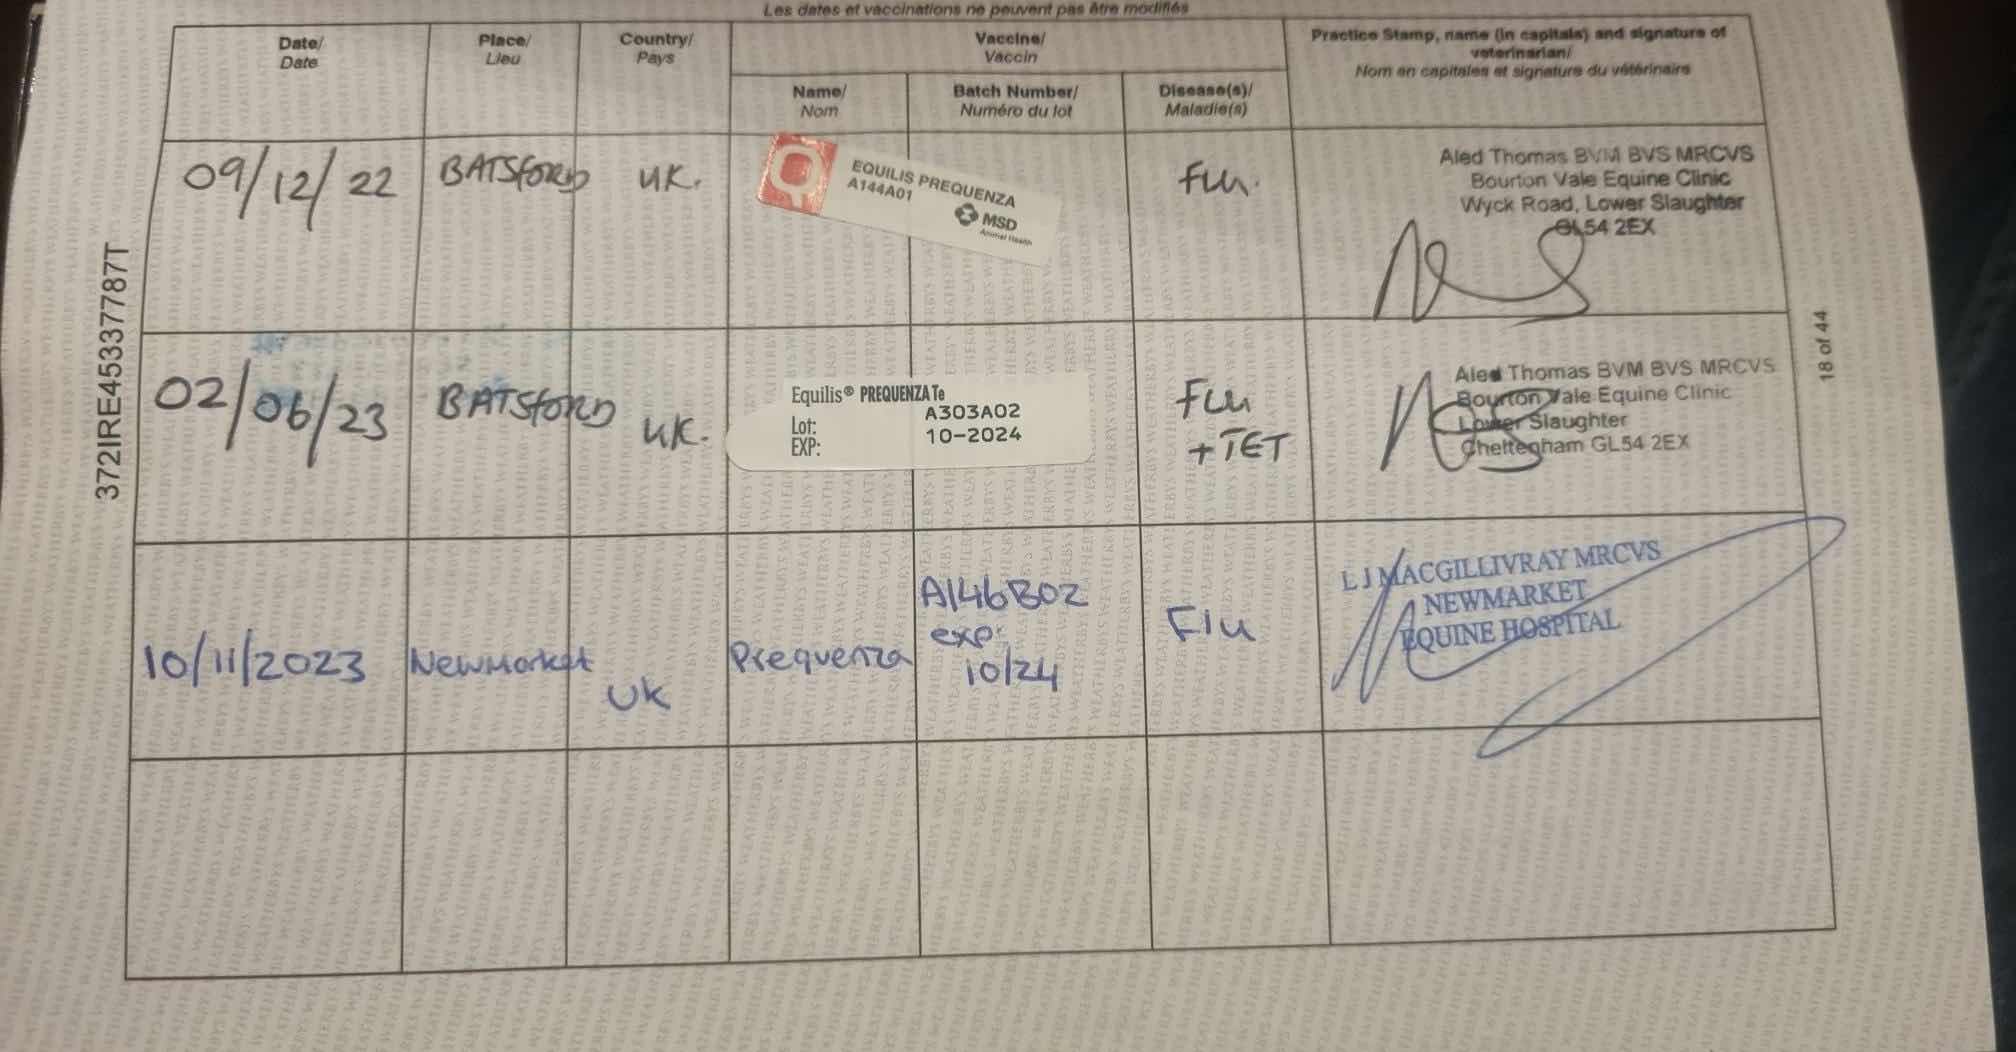 Les dates et vaccinations ne peuvent pas être modifiés
Date/
Date
Place/
Lieu
Country/
Pays
Vaccine/
Vaccin
Name/
Nom
Batch Number/
Numéro du lot
Disease(s)/
Maladie(s)
Practice Stamp, name (in capitals) and signature of
veterinarian/
Nom en capitales et signature du vétérinaire
09/12/22
BATSFORD
UK.
EQUILIS PREQUENZA
A144A01
MSD
Animal Health
Flu.
Aled Thomas BVM BVS MRCVS
Bourton Vale Equine Clinic
Wyck Road, Lower Slaughter
GL54 2EX
02/06/23
BATSFORD
UK.
Equilis® PREQUENZA Te
Lot: A303A02
EXP: 10-2024
Flu
+ TET
Aled Thomas BVM BVS MRCVS
Bourton Vale Equine Clinic
Lower Slaughter
Cheltegham GL54 2EX
10/11/2023
Newmarket
UK
Prequenza
A146B02
exp:
10/24
Flu
L J MACGILLIVRAY MRCVS
NEWMARKET
EQUINE HOSPITAL
372IRE45337787T
18 of 44